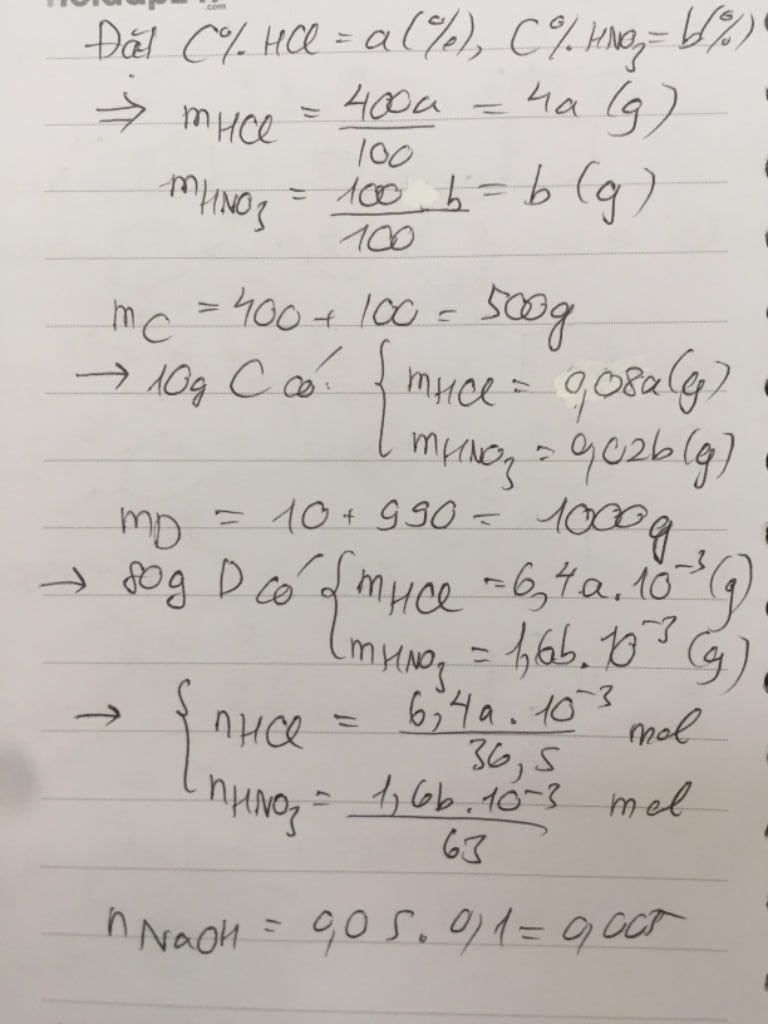 .com
Đặt C% HCl = a(%), C% HNO3 = b(%)
⇒ mHCl = 400a/100 = 4a (g)
mHNO3 = 100 b/100 = b (g)
mC = 400 + 100 = 500g
→ 10g C có: { mHCl = 0,08a(g)
mHNO3 = 0,02b(g)
mD = 10 + 990 = 1000g
→ 80g D có { mHCl = 6,4a.10^-3 (g)
mHNO3 = 1,6b.10^-3 (g)
→ { nHCl = 6,4a.10^-3/36,5 mol
nHNO3 = 1,6b.10^-3/63 mol
nNaOH = 0,05.0,1 = 0,005